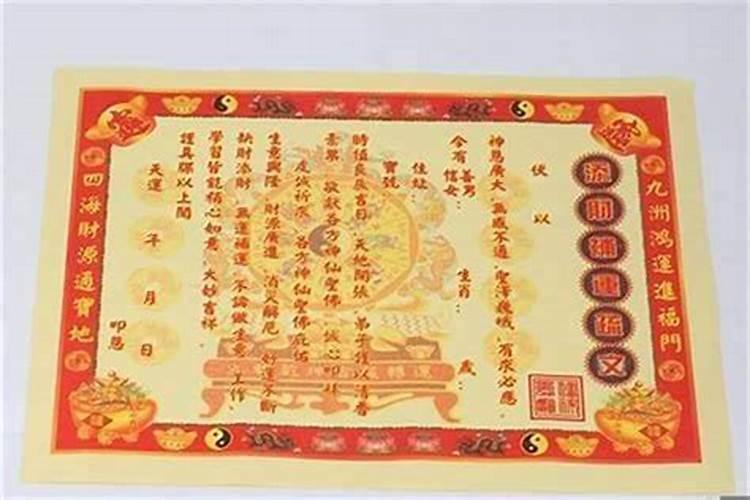 九洲鴻運進福門
添財補運疏文
伏以
神恩廣大 無感不通 聖澤巍峨 有求必應
今有善男信女： 生肖： 歲：
住址：
寶號
時值良辰吉日 天地開張 弟子謹以清香
素果 敬獻各方神仙聖佛 誠心叩拜
虔誠祈求 各方神仙聖佛庇佑
生意興隆 財源廣進 消災解厄 好運不斷
缺財添財 無運補運 不論做生意 工作、
學習皆能稱心如意 大妙吉祥
謹具疏以上聞
天運 年 月 日
叩懇
四海財源通寶地